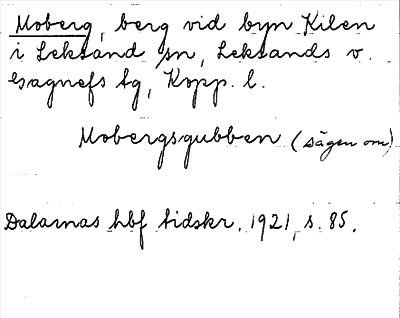 Moberg, berg vid byn Kilen
i Leksand sn, Leksands o.
Gagnefs tg, Kopp. l.
Mobergsgubben (sägen om)
Dalarnas hbf tidskr. 1921, s. 85.